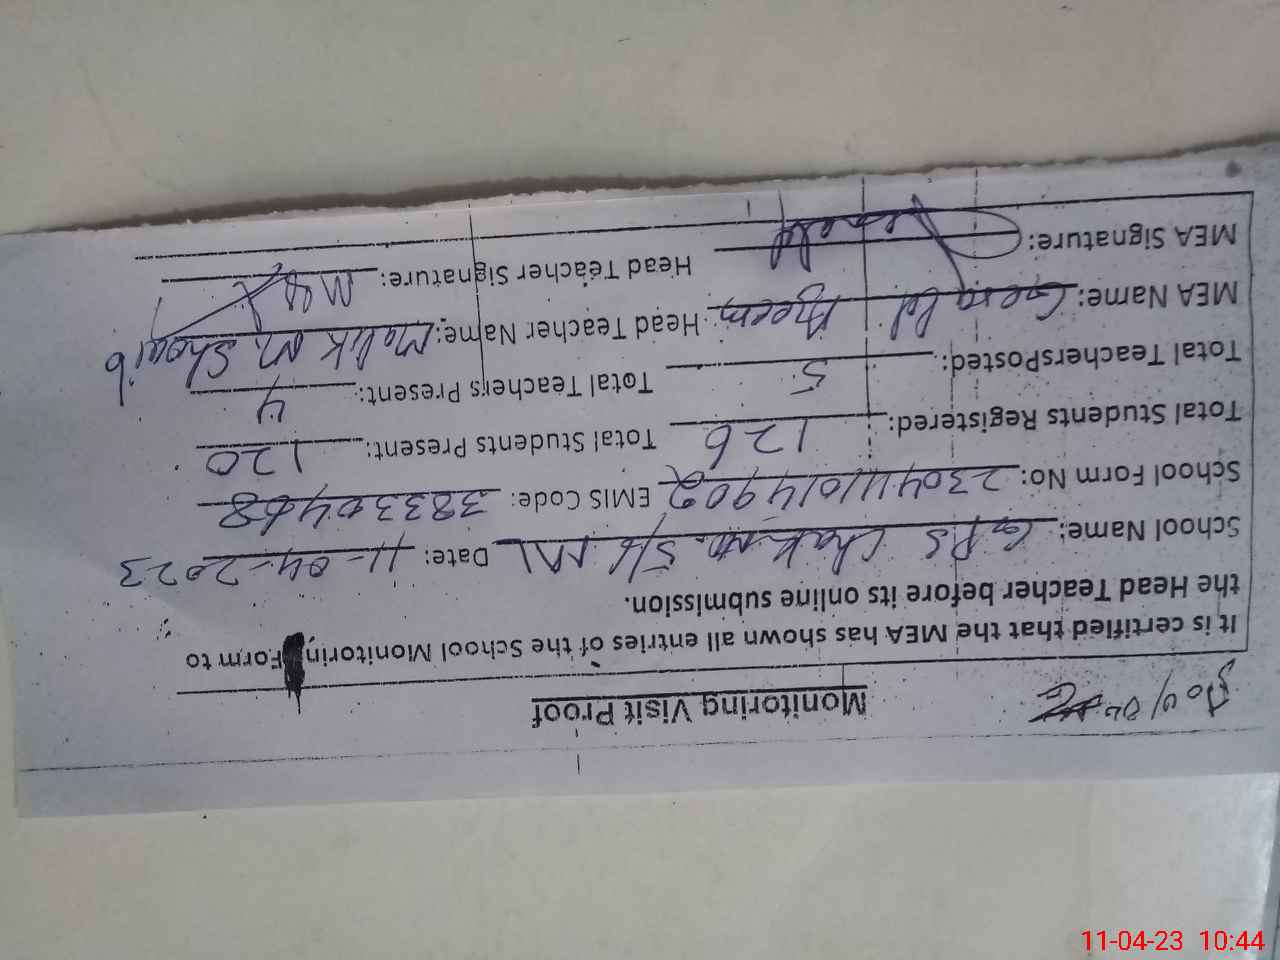 Monitoring Visit Proof
It is certified that the MEA has shown all entries of the School Monitoring Form to
the Head Teacher before its online submission.
School Name: G.P.S Chak No. 5/6 Date: 11-04-2023
School Form No: EMIS Code: 38330468
Total Students Registered: 126 Total Students Present: 120
Total TeachersPosted: 5 Total Teachers Present: 4
MEA Name: Gerald Head Teacher Name: Malik M. Shoaib
MEA Signature: Gerald Head Teacher Signature:
11-04-23 10:44